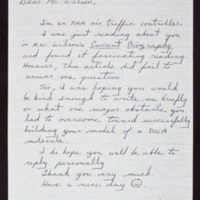 Dear Mr. Wilson,
I'm an air traffic controller.
I was just reading about you
in H.W. Wilsons Current Biography
and found it fascinating reading
However, the article did fail to
answer one question.
So, I was hoping you would
be kind enough to write me briefly
on what one major obstacle, you
had to overcome, toward successfully
building your model of a DNA
molecule.
I do hope you will be able to
reply personally.
Thank you very much.
Have a nice day ☺.